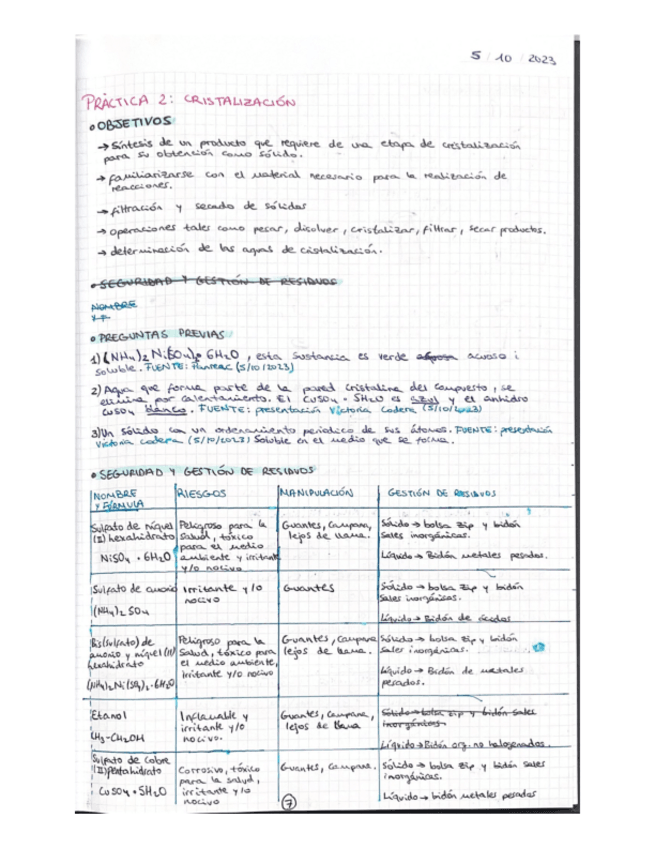 5 / 10 / 2023
PRÁCTICA 2: CRISTALIZACIÓN
• OBJETIVOS
→ Síntesis de un producto que requiere de una etapa de cristalización
para su obtención como sólido.
→ familiarizarse con el material necesario para la realización de
reacciones.
→ filtración y secado de sólidos
→ operaciones tales como pesar, disolver, cristalizar, filtrar, secar productos.
→ determinación de las aguas de cistalización.
• SEGURIDAD Y GESTIÓN DE RESIDUOS
NOMBRE
Y F
• PREGUNTAS PREVIAS
1) (NH4)2 Ni(SO4)2 6H2O, esta sustancia es verde acuoso i
soluble. FUENTE: Panreac (5/10/2023)
2) Agua que forma parte de la pared cristalina del compuesto, se
elimina por calentamiento. El CuSO4 · 5H2O es azul y el anhidro
CuSO4 blanco. FUENTE: presentación Victoria Codera (5/10/2023)
3) Un sólido con un ordenamiento periodico de sus átomos. FUENTE: presentación
Victoria Codera (5/10/2023) Soluble en el medio que se forma.
• SEGURIDAD Y GESTIÓN DE RESIDUOS
NOMBRE Y FÓRMULA
RIESGOS
MANIPULACIÓN
GESTIÓN DE RESIDUOS
Sulfato de níquel
(II) hexahidrato
NiSO4 · 6H2O
Peligroso para la
salud, tóxico
para el medio
ambiente y irritante
y/o nocivo
Guantes, campana,
lejos de llama.
Sólido → bolsa zip y bidón
sales inorgánicas.
Líquido → Bidón metales pesados.
Sulfato de amonio
(NH4)2 SO4
irritante y/o
nocivo
Guantes
Sólido → bolsa zip y bidón
sales inorgánicas.
Líquido → Bidón de ácidos
Bis(sulfato) de
amonio y níquel (II)
hexahidrato
(NH4)2Ni(SO4)2·6H2O
Peligroso para la
salud, tóxico para
el medio ambiente,
irritante y/o nocivo
Guantes, campana
lejos de llama.
Sólido → bolsa zip y bidón
sales inorgánicas.
Líquido → Bidón de metales
pesados.
Etanol
CH3-CH2OH
Inflamable y
irritante y/o
nocivo.
Guantes, campana,
lejos de llama
Sólido → bolsa zip y bidón sales
inorgánicas
Líquido → Bidón org. no halogenados.
Sulfato de cobre
(II) pentahidrato
CuSO4 · 5H2O
Corrosivo, tóxico
para la salud,
irritante y/o
nocivo
Guantes, campana.
Sólido → bolsa zip y bidón sales
inorgánicas.
Líquido → bidón metales pesados
7